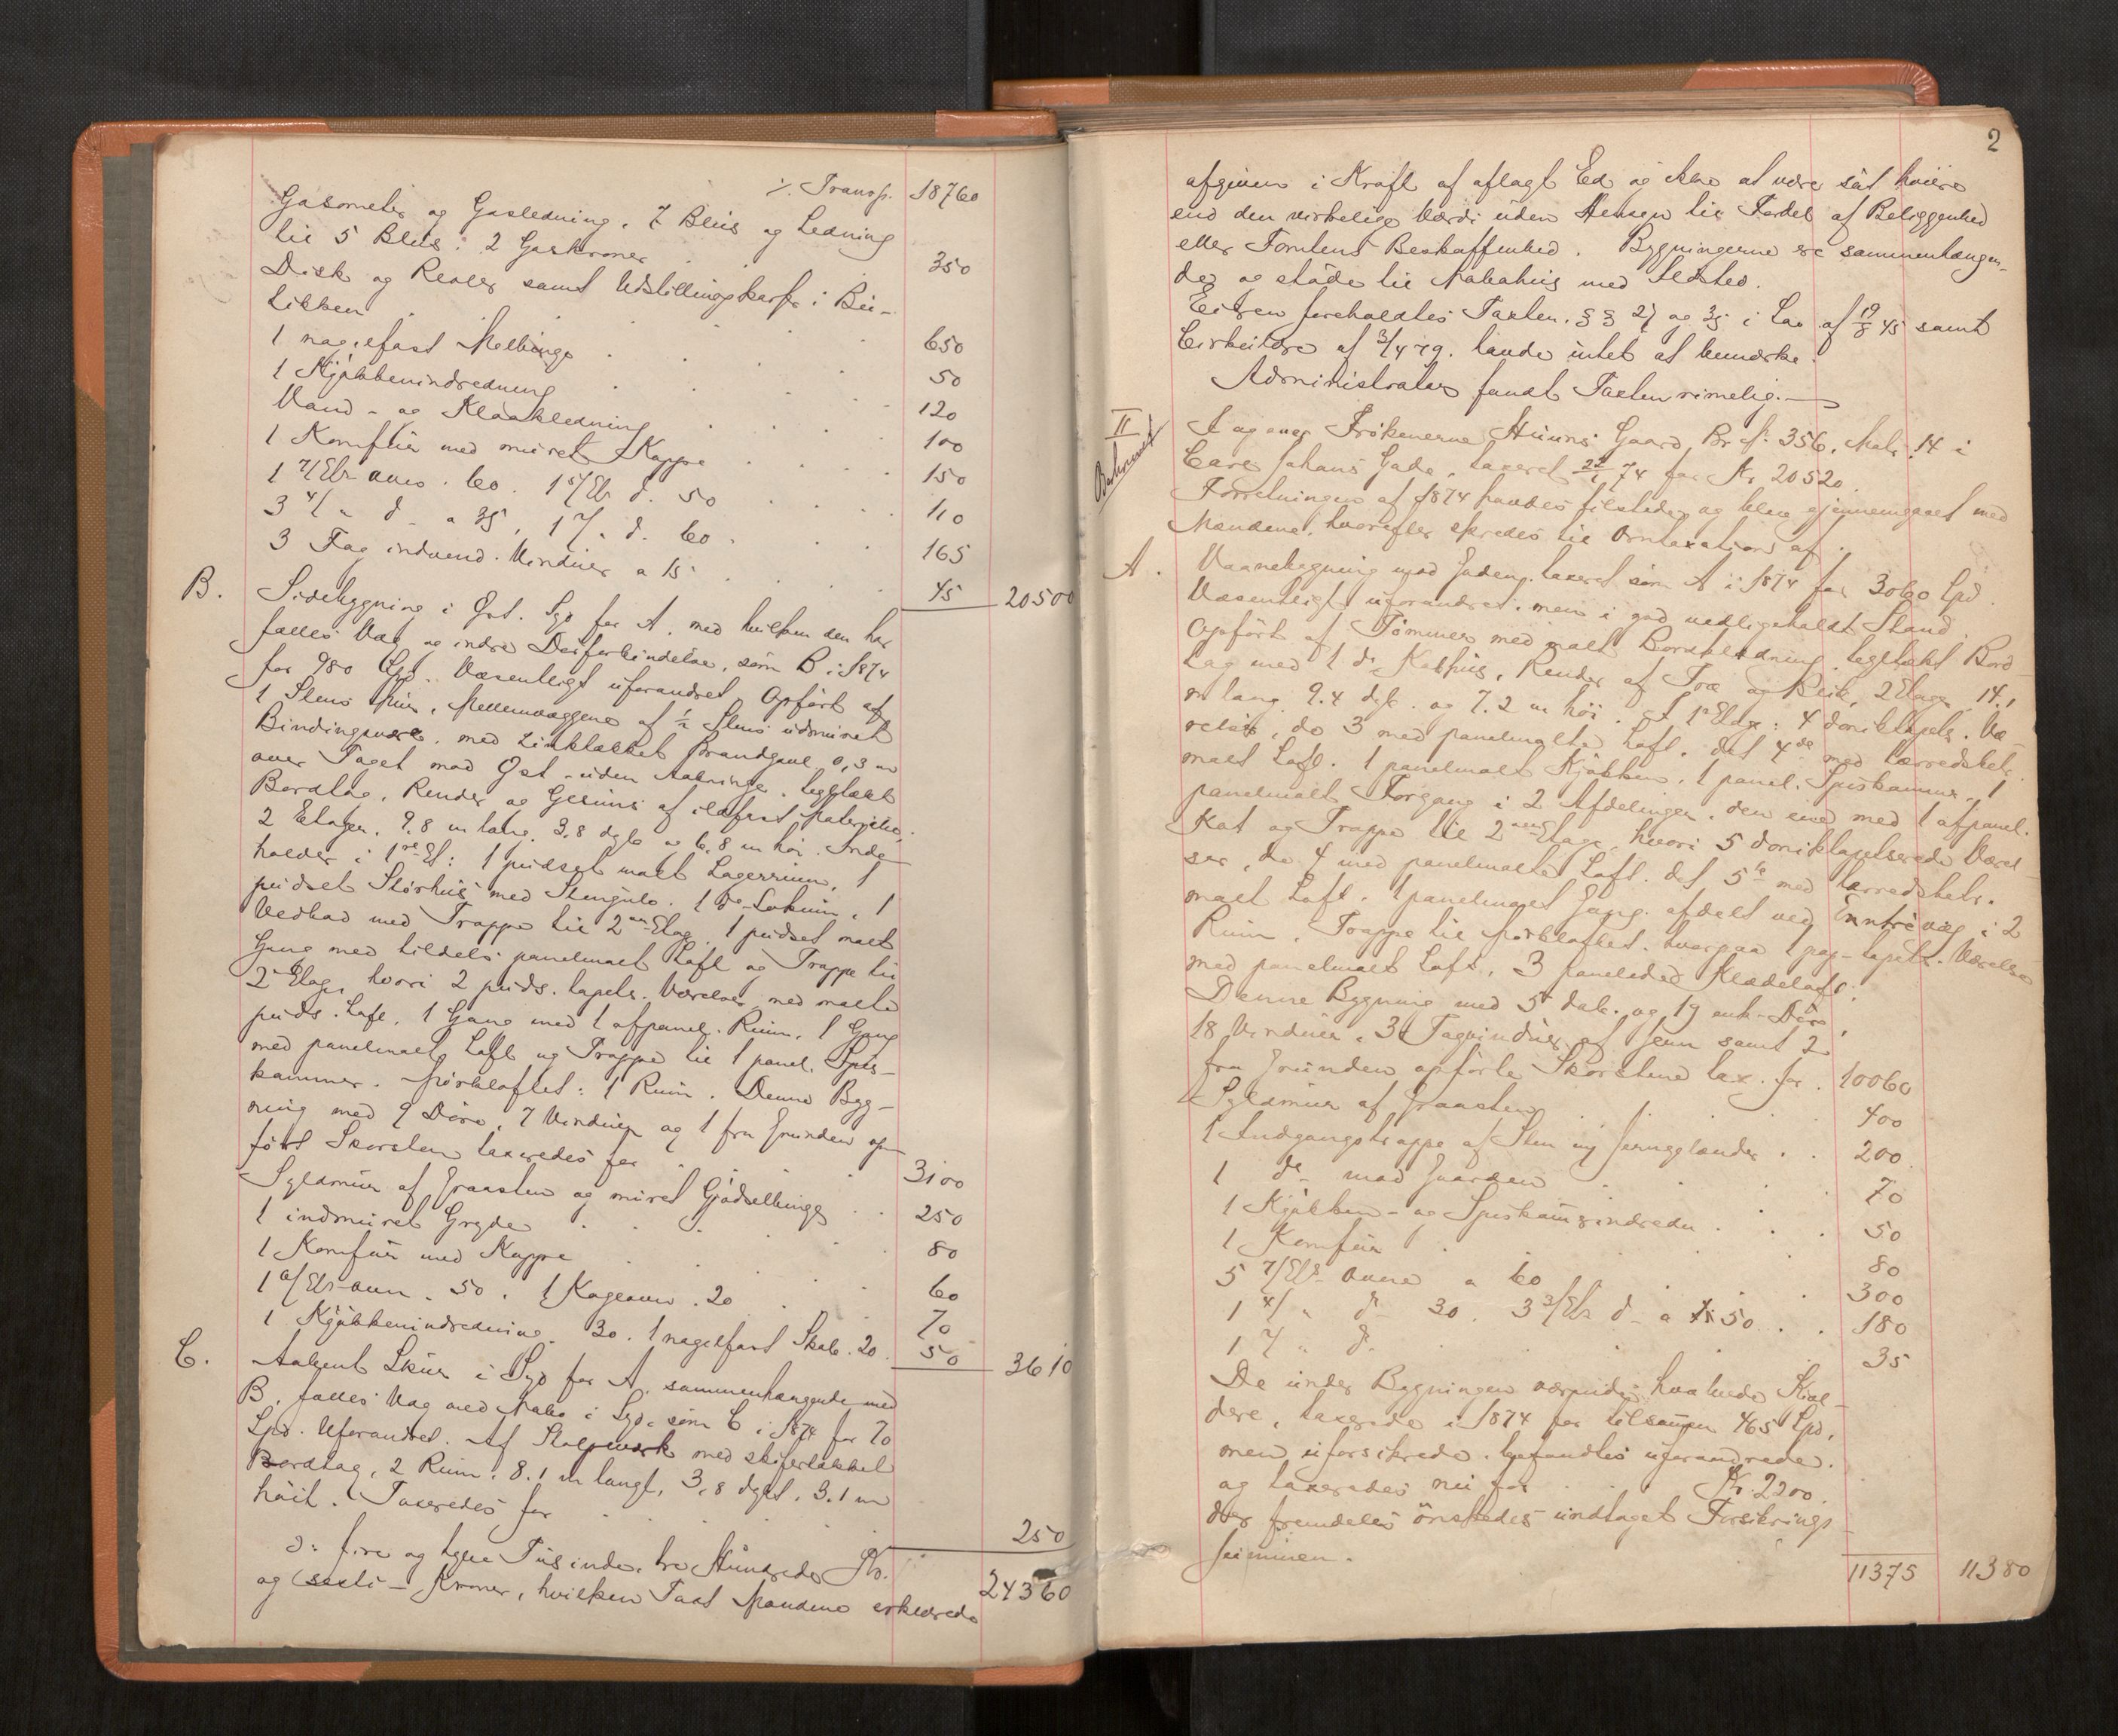 ./. Transp. 18760
Gasometer og Gasledning, 7 Blus og Ledning
til 5 Blus. 2 Gaskroner . . 350
Disk og Reoler samt Udstillingskasse i Bu-
tikken . . . 650
1 nagelfast Melbinge . . . 50
1 Kjøkkenindredning . . . 120
Vand- og Kloakledning . . . 100
1 Komfur med muret Kappe . . . 150
1 7/Etr ovn. 60. 1 5/Etr do. 50 . . . 110
3 4/ " do a 35, 1 7/ " do. 60 . . . 165
3 Fag indvend. Vinduer a 15 . . . 45 20500
B. Sidebygning i Øst. Syd for A, med hvilken den har
fælles Væg og indre Dørforbindelse, som B i 1874
for 980 Spd. Væsentligt uforandret. Opført af
1 Stens Mur, Mellemvæggene af 1/2 Stens udmuret
Bindingsværk, med zinktækket Brandgavl 0,3 m
over Taget mod Øst - uden Aabninge. tegltækt
Bordtag, Render og Gesims af ildfast Materiale,
2 Etager, 9.8 m lang, 3.8 dyb og 6.8 m høi. Inde-
holder i 1ste Et: 1 pudset malt Lagerrum, 1
pudset Størhus med Stengulv. 1 do Lokum, 1
Vedbod med Trappe til 2den Etag. 1 pudset malt
Gang med tildels panelmalt Loft og Trappe til
2 Etag, hvori 2 puds. tapets. Værelser med malte
puds. Loft, 1 Gang med 1 afpanel. Rum, 1 Gang
med panelmalt Loft og Trappe til 1 panel. Spis-
kammer. Mørkloftet: 1 Rum. Denne Byg-
ning med 9 Døre, 7 Vinduer og 1 fra Grunden op-
ført Skorsten taxeredes for . . 3100
Syldmur af Graasten og muret Gjødselbinge . . 250
1 indmuret Gryde . . . 80
1 Komfur med Kappe . . . 60
1 6/Etr-ovn. 50. 1 Kageovn. 20 . . 70
1 Kjøkkenindredning. 30. 1 nagelfast Skab. 20. 50 3610
C. Aabent Skur i Syd for A, sammenhængende med
B, fælles Væg med Nabo i Syd, som C i 1874 for 70
Spd. Uforandret. Af Stolpeværk med skifertækket
Bordtag, 2 Rum, 8.1 m langt, 3,8 dybt, 3.1 m
høit. Taxeredes for . . . 250
Kr. 24360
ɔ: fire og tyve Tusinde, tre Hundrede
og sexti - Kroner, hvilken Taxt Mændene erklærede
2
afgiven i Kraft af aflagt Ed og ikke at være sat høiere
end den virkelige Værdi uden Hensyn til Fordel af Beliggenhed
eller Tomtens Beskaffenhed. Bygningerne ere sammenhængen-
de og støde til Nabohus med Ildsted.
Eieren foreholdtes Taxten, §§ 27 og 35 i Lov af 19/8 45 samt
Cirkulære af 3/4 79. havde intet at bemærke.
Administrator fandt Taxten rimelig.
II I ag over Frøknerne Gaard, Br. No. 356, Matr. 14 i
Carl Johans Gade, taxeret 22/ 74 for Kr. 20520.
Forretningen af 1874 havdes tilstede og blev gjennemgaaet med
Mændene, hvorefter skredes til Omtaxation af:
A. Vaanebygning mod Gaden, taxeret som A i 1874 for 3060 Spd.
Væsentligt uforandret, men i god vedligeholdt Stand.
Opført af Tømmer med malt Bordklædning, tegltækt Bord-
tag med 1 do Kvisthus, Render af Træ og Blik, 2 Etager, 14.1
m lang, 9.4 dyb og 7.2 m høi. I 1ste Etage: 4 doniktapets. Væ-
relser, de 3 med panelmalte Loft, det 4de med lærredsbetr.
malt Loft. 1 panelmalt Kjøkken, 1 panel. Spiskammer, 1
panelmalt Forgang i 2 Afdelinger, den ene med 1 afpanel.
Kot og Trappe til 2den Etage, hvori 5 doniktapetserede Værel-
ser, de 4 med panelmalte Loft, det 5te med lærredsbetr.
malt Loft. 1 panelmalet Gang, afdelt ved Entrevæg i 2
Rum. Trappe til Mørkloftet, hvorpaa 1 pap-tapets. Værelse
med panelmalt Loft, 3 panelede Klædeloft.
Denne Bygning med 5 dob. og 19 enk. Døre,
18 Vinduer, 3 Tagvinduer af Jern samt 2
fra Grunden opførte Skorstene tax. for . 10060
Syldmur af Graasten . . . 400
1 Indgangstrappe af Sten og Jerngelænder . . 200
1 do mod Gaarden . . . 70
1 Kjøkken- og Spiskammerindredn. . . 50
1 Komfur . . . 80
5 7/Etr. ovne a 60 . . . 300
1 4/ " do 30. 3 3/Etr do a 50 . . 180
1 7 " do . . . 35
De under Bygningen værende hvælvede Kjæl-
dere, taxerede i 1874 for tilsammen 465 Spd,
men uforsikrede, befandtes uforandrede,
og taxeredes nu for . . Kr. 2200.
der fremdeles ønskedes undtaget Forsikrings-
summen.
11375 11380